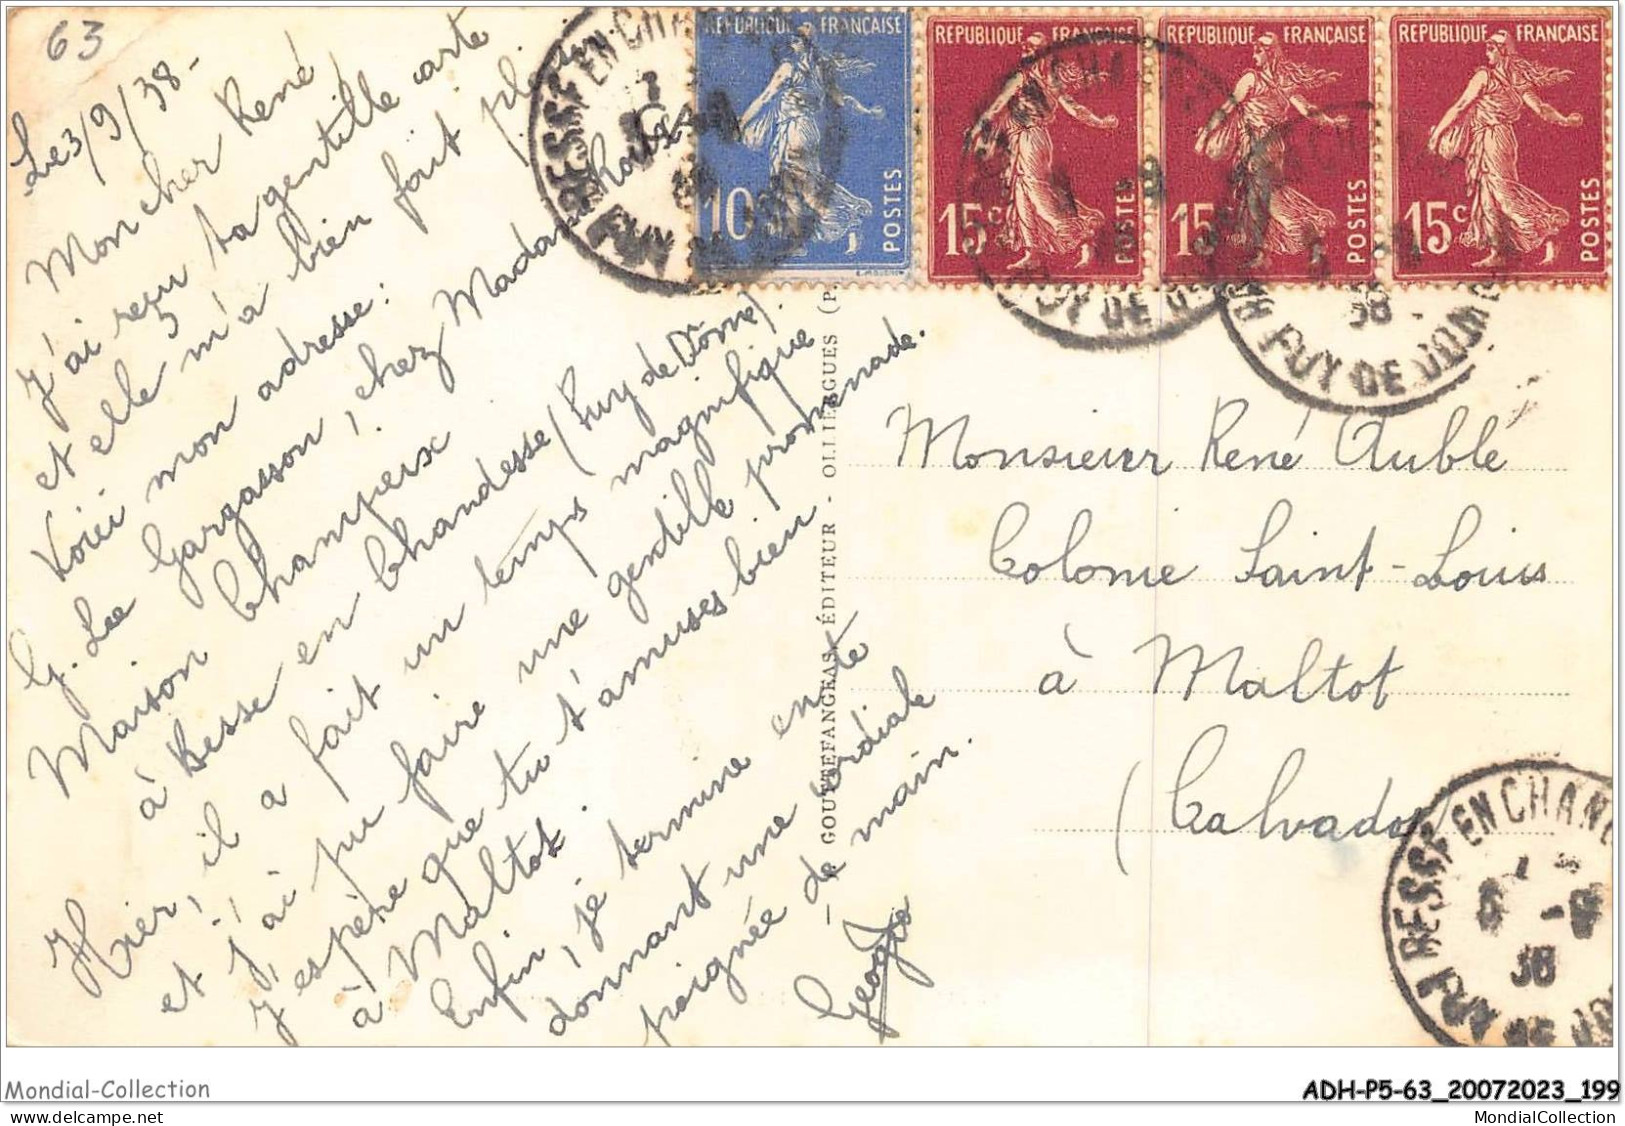 63
Le 3/9/38-
Mon cher René
J'ai reçu ta gentille carte
et elle m'a bien fait
Voici mon adresse :
G. Le Gargasson, chez Madame
Maison Champeix
à Besse en Chandesse (Puy de Dôme).
Hier, il a fait un temps magnifique
et j'ai pu faire une gentille promenade.
J'espère que tu t'amuses bien
à Maltot.
Enfin, je termine en te
donnant une cordiale
poignée de main.
George
GOUTTEFANGEAS, ÉDITEUR - OLLIERGUES (P.
RÉPUBLIQUE FRANÇAISE
10
POSTES
RÉPUBLIQUE FRANÇAISE
15c
POSTES
RÉPUBLIQUE FRANÇAISE
15
POSTES
RÉPUBLIQUE FRANÇAISE
15c
POSTES
BESSE EN CHAN
PUY DE
PUY DE
38
PUY DE DOME
Monsieur René Aublé
Colonie Saint-Louis
à Maltot
(Calvados
BESSE EN CHAND
38
PUY DE DO
Mondial-Collection
ADH-P5-63_20072023_199
MondialCollection